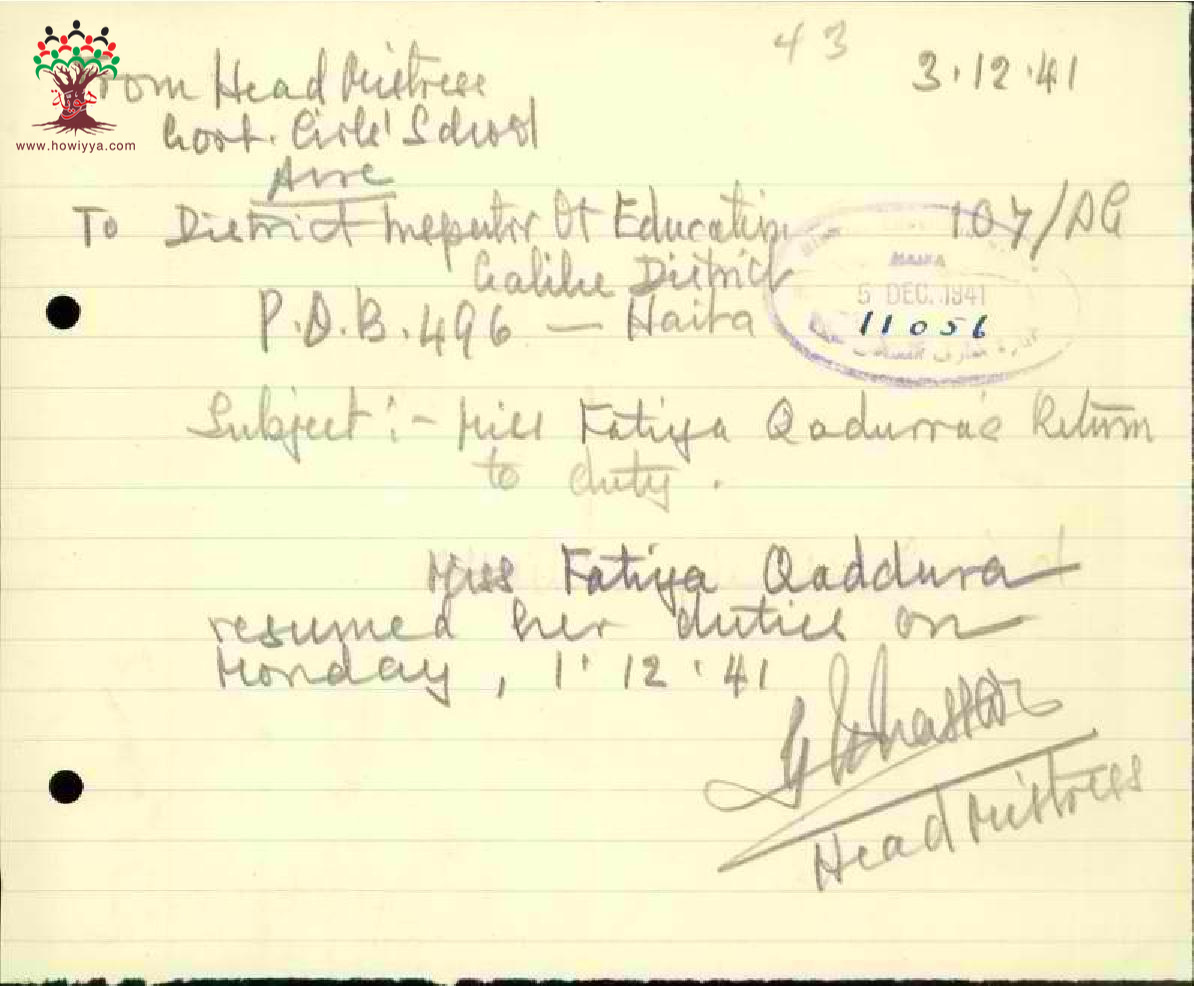 43
3.12.41
From Head Mistress
Govt. Girls' School
Acre
To District Inspector Of Education
107/AG
Galilee District
P.O.B. 496 — Haifa
HAIFA
5 DEC. 1941
11056
Subject :- Miss Fatiya Qadurra's Return
to duty .
Miss Fatiya Qaddura
resumed her duties on
Monday, 1.12.41
Head Mistress
www.howiyya.com